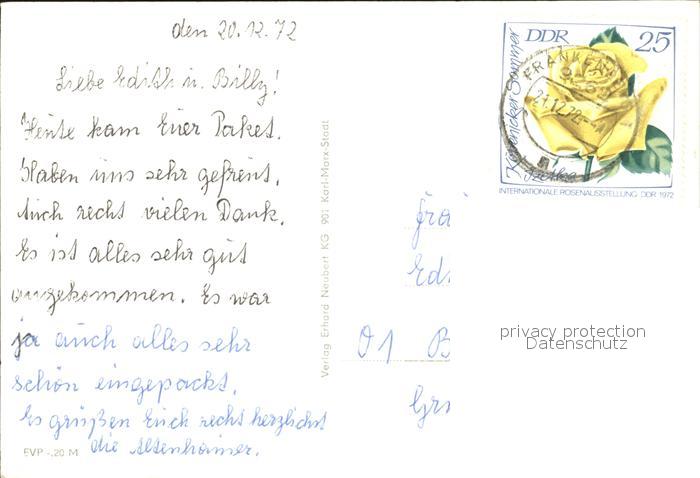 den 20.12.72
Liebe Edith u. Billy!
Heute kam Euer Paket.
Haben uns sehr gefreut,
Auch recht vielen Dank.
Es ist alles sehr gut
angekommen. Es war
ja auch alles sehr
schön eingepackt.
Es grüßen Euch recht herzlichst
die Altenhainer.
EVP -,20 M
Verlag Erhard Neubert KG 901 Karl-Marx-Stadt
DDR 25
Köpenicker Sommer
INTERNATIONALE ROSENAUSSTELLUNG DDR 1972
FRANKEN
21.12.72
01 B
privacy protection
Datenschutz